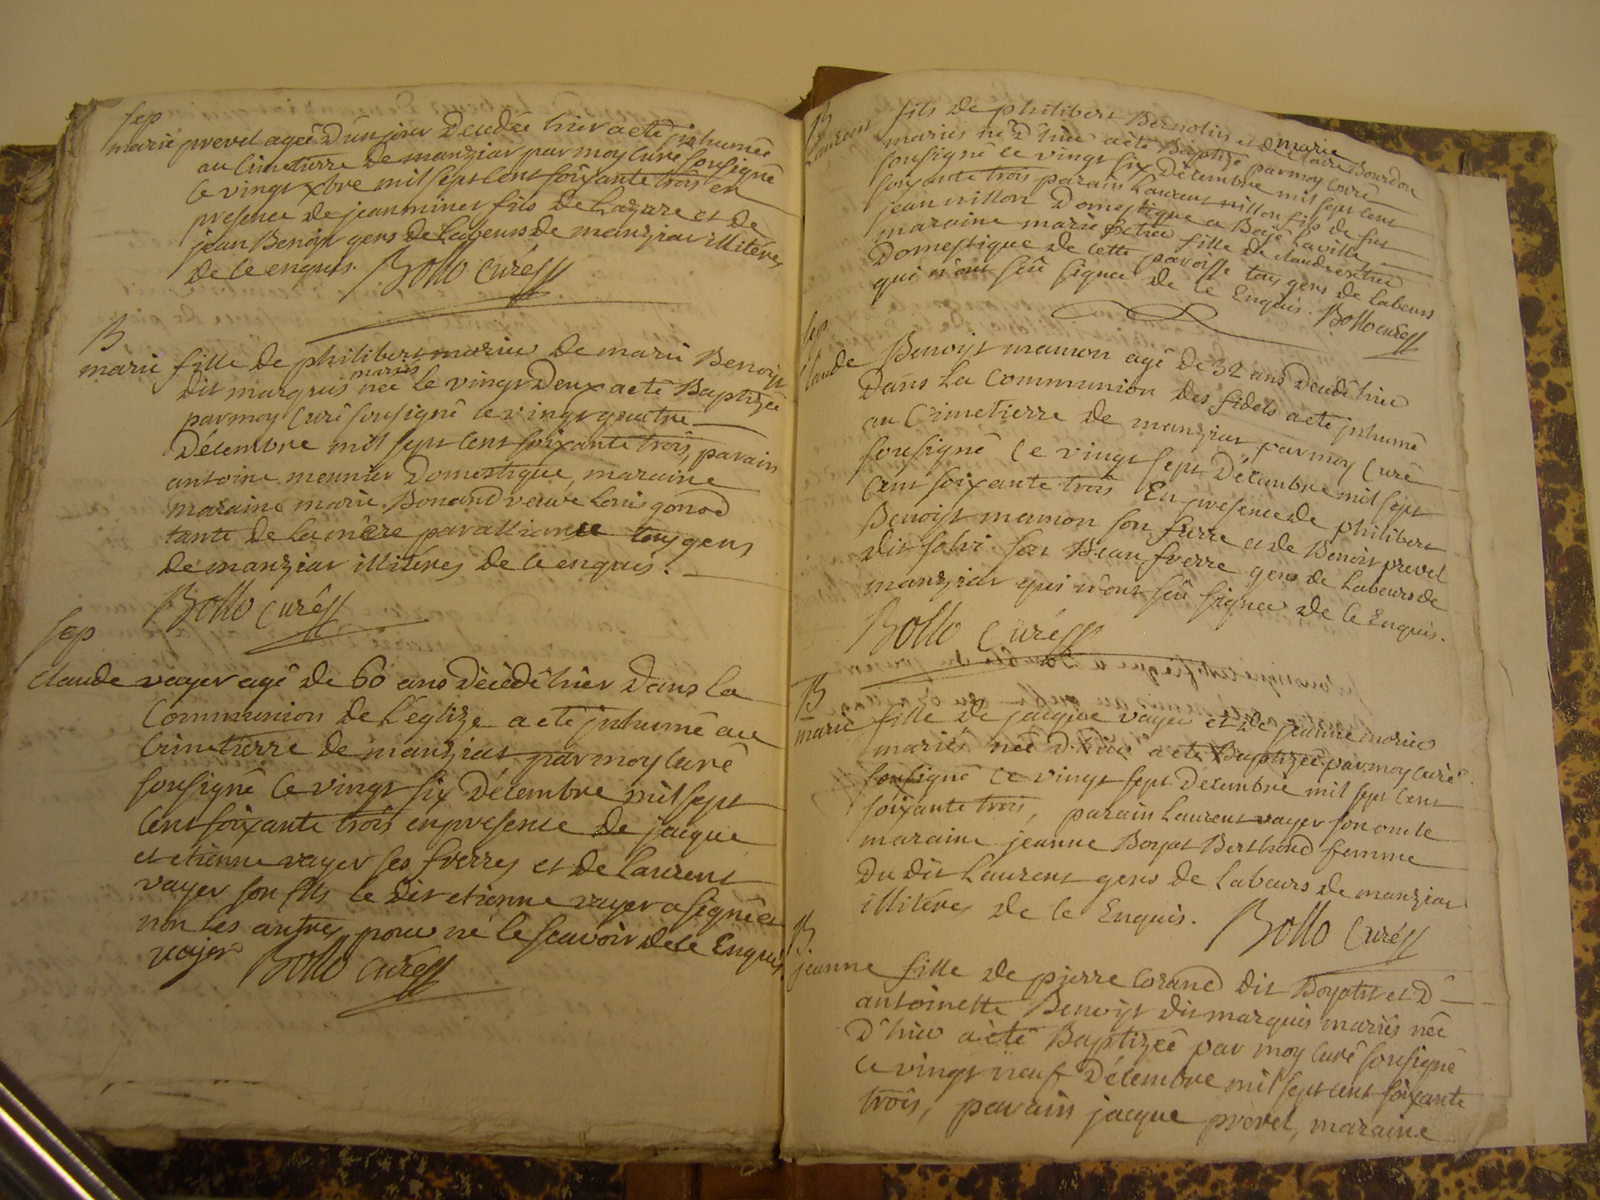 sep
marie prevel ageé d'un jour decedée hier a eté inhumée
au cimetierre de manziat par moy curé sousigné
le vingt xbre mil sept cent soixante trois en
presence de jean minet fils de Lazare et de
jean Benoist gens de Labeurs de manziat illitérés
de ce enquis. Bollo curé
B
marie fille de philibert marin de marie Benoist
dit marquis mariés née le vingt deux a eté Baptizée
par moy curé sousigné le vingt quatre
Décembre mil sept cent soixante trois, parain
antoine meunier Domestique, maraine
maraine marie Bonand veuve Louis gonod
tante de la mére par alliance tous gens
de manziat illitérés de ce enquis.
Bollo curé
sep
Claude voyer agé de 60 ans décédé hier dans la
Communion de L'eglize a eté inhumé au
Cimetierre de manziat par moy curé
sousigné le vingt six Décembre mil sept
Cent soixante trois en presence de jacque
et etienne voyer ses frerres et de Laurent
voyer son fils le dit etienne voyer a signé et
non les autres pour ne le scavoir de ce Enquis
voyer Bollo curé
B
Laurent fils de philibert Bernolin et de Claire marie Bourdon
mariés né d'hier a eté Baptizé par moy curé
sousigné le vingt six Décembre mil sept cent
soixante trois parain Laurent nillon fils de fut
jean nillon Domestique a Bagé Laville,
maraine marie fille de claude
Domestique de cette paroisse tous gens de Labeurs
qui n'ont sçû signer de ce Enquis. Bollo curé
sep
Claude Benoist mamon agé de 32 ans decedé hier
Dans La Communion des fidels a eté inhumé
au Cimetierre de manziat par moy Curé
sousigné le vingt sept Décembre mil sept
Cent soixante trois En presence de philibert
Benoist mamon son frerre et de Benoist prevel
dit son Beau frerre gens de Labeurs de
manziat qui n'ont sçû signer de ce Enquis.
Bollo Curé
B
marie fille de jacque voyer et de jeanne morin
mariés née d'hier a eté Baptizée par moy Curé
sousigné le vingt sept Decembre mil sept Cent
soixante trois, parain Laurent voyer son oncle
maraine jeanne Boyat Berthoud femme
Du dit Laurent gens de Labeurs de manziat
illitérés de ce Enquis. Bollo Curé
B
jeanne fille de pierre Corand dit Boyat et D
antoinette Benoist dit marquis mariés née
D'hier a eté Baptizée par moy Curé sousigné
le vingt neuf Décembre mil sept cent soixante
trois, parain jacque prevel, maraine